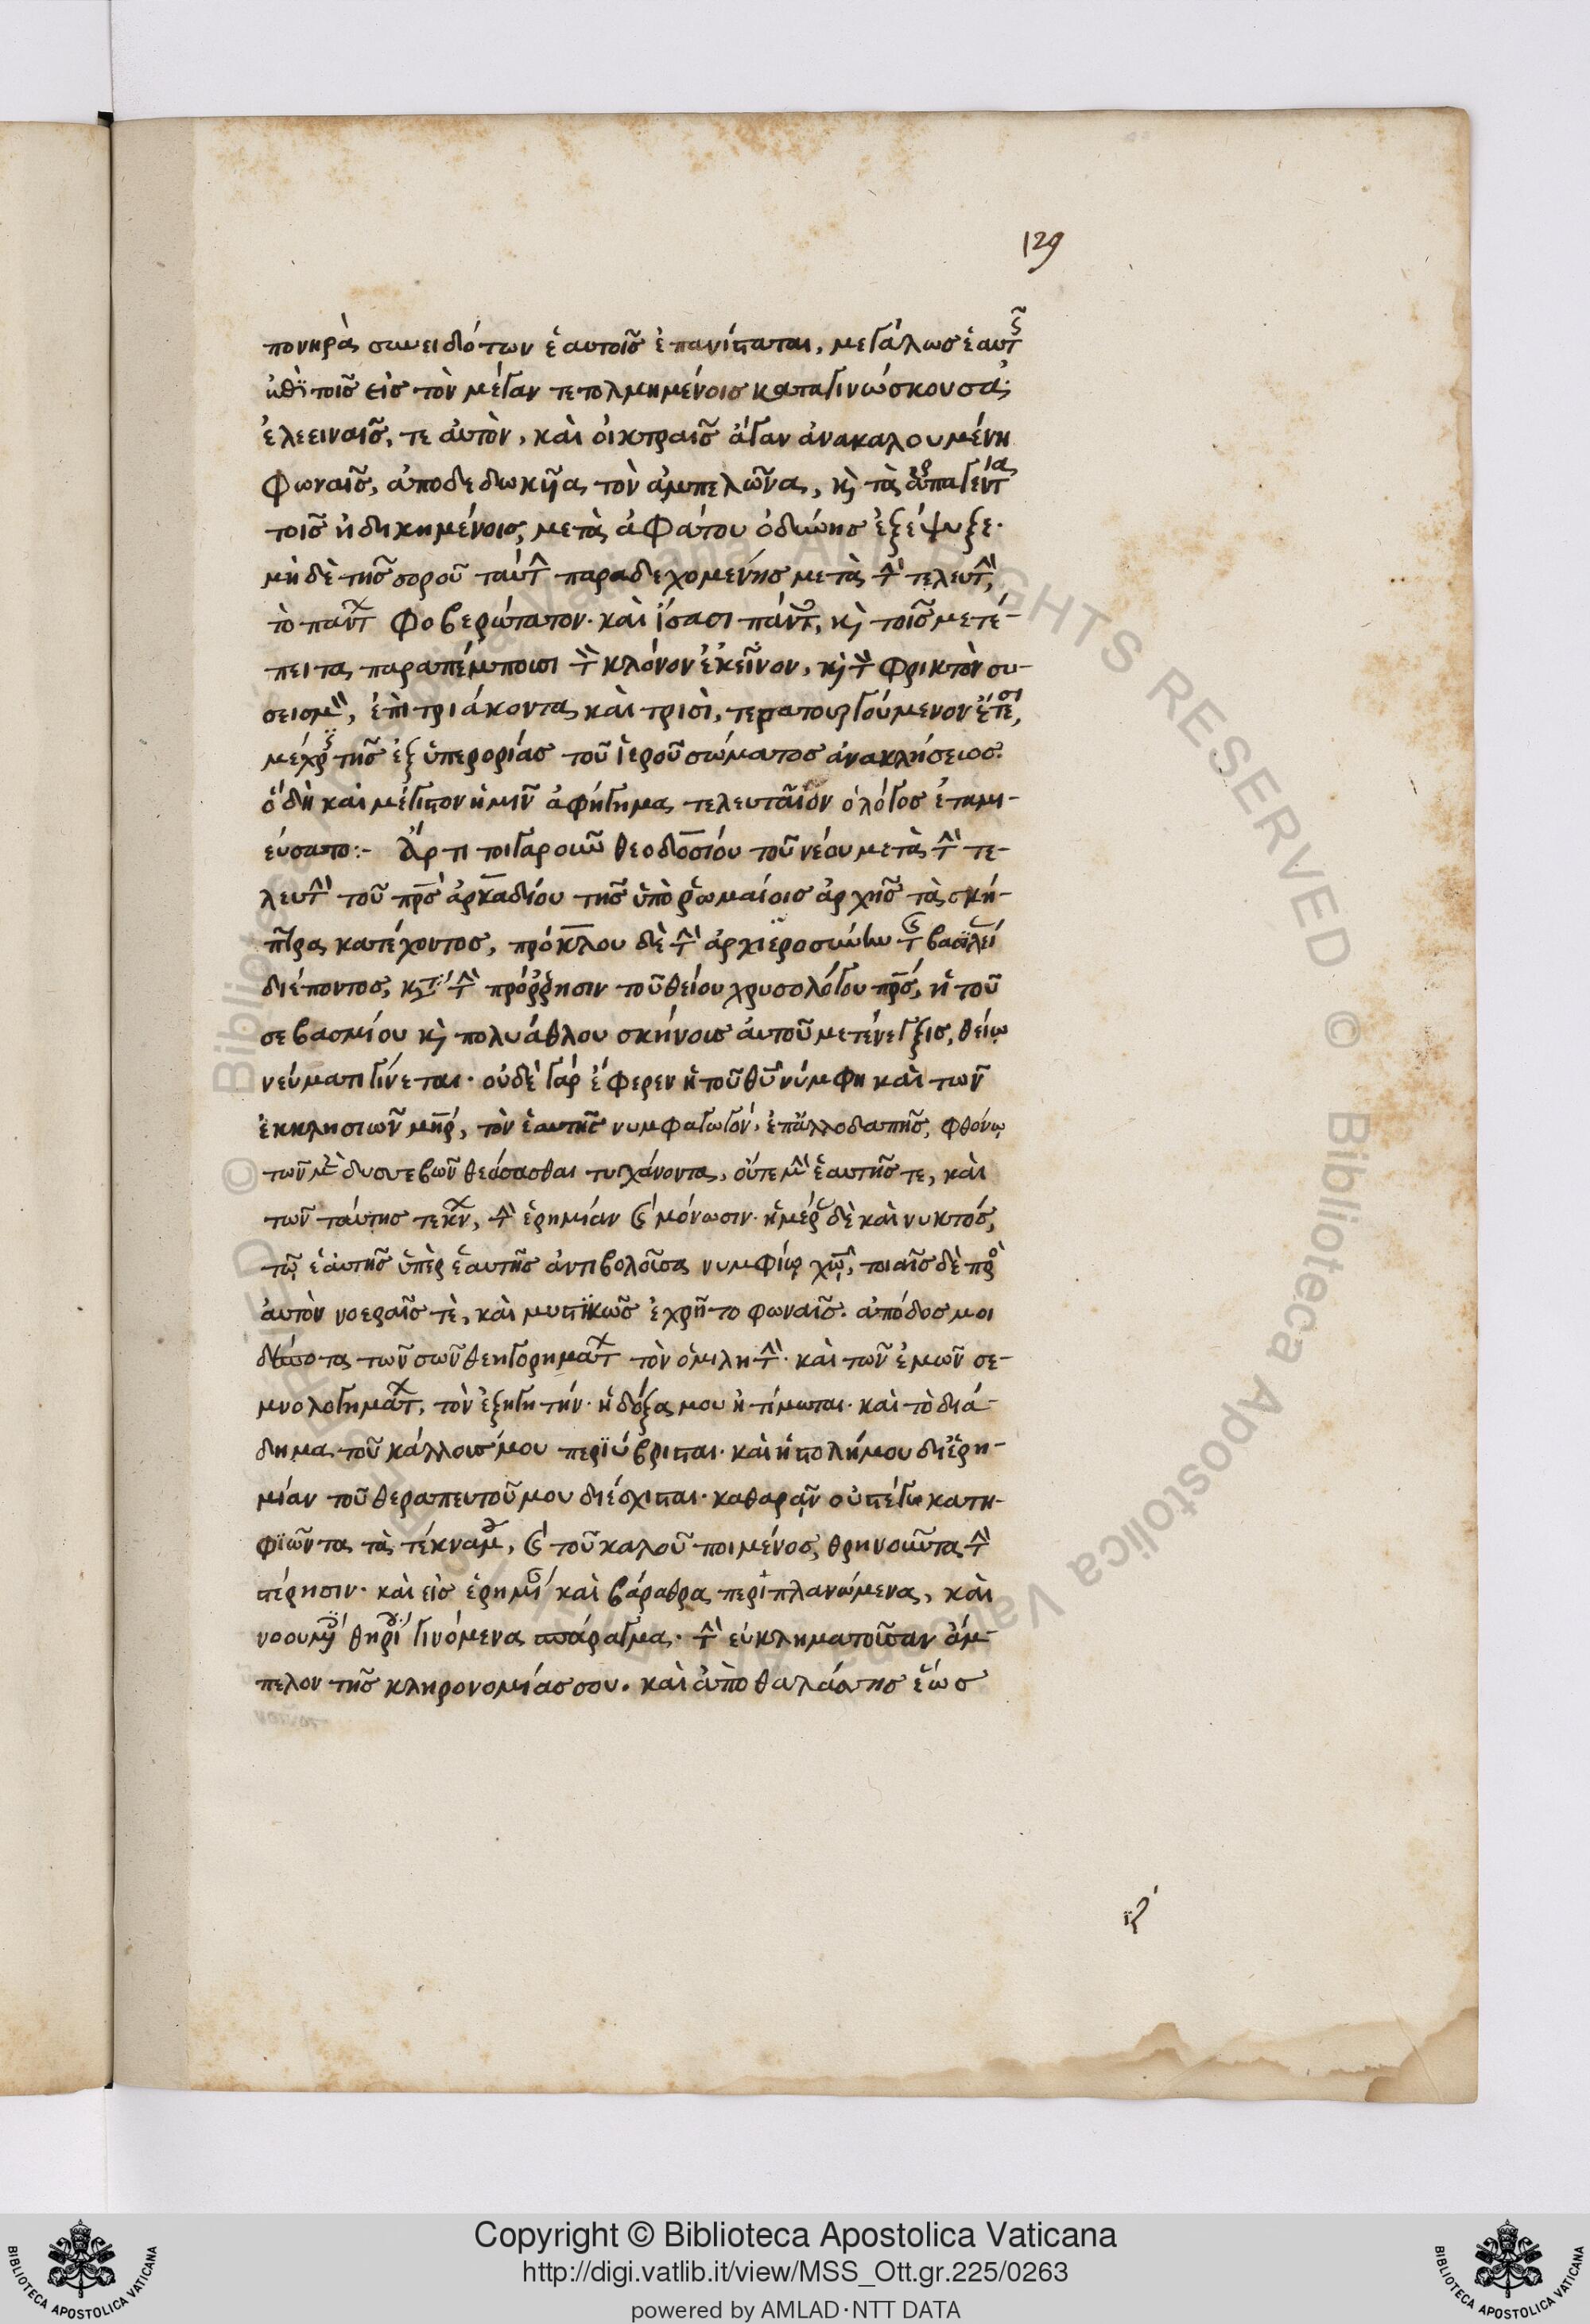 129
πονηρὰ συνειδότων ἑαυτοῖς ἐπανίσταται, μεγάλως ἑαυτῆς
ἐπὶ τοῖς εἰς τὸν μέγαν τετολμημένοις καταγινώσκουσα·
ἐλεειναῖς, τε αὐτὸν, καὶ οἰκτραῖς ἄγαν ἀνακαλουμένη
φωναῖς, ἀποδεδωκυῖα τὸν ἀμπελῶνα, κὶ τὰ ἁρπαγέντα
τοῖς ἠδικημένοις, μετὰ ἀφάτου ὀδύνης ἐξέψυξε·
μηδὲ τῆς σοροῦ ταύτην παραδεχομένης μετὰ τὴν τελευτὴν,
τὸ πάντων φοβερώτατον· καὶ ἴσασι πάντες, κὶ τοῖς μετέ-
πειτα παραπέμπουσι τὸν κλόνον ἐκεῖνον, κὶ τὸν φρικτὸν συ-
σεισμὸν, ἐπὶ τριάκοντα καὶ τρισὶ, τερατουργούμενον ἔτεσι,
μέχρι τῆς ἐξ ὑπερορίας τοῦ ἱεροῦ σώματος ἀνακλήσεως·
ὃ δὴ καὶ μέγιστον ἡμῖν ἀφήγημα τελευταῖον ὁ λόγος ἐταμι-
εύσατο:- Ἄρτι τοιγαροῦν θεοδοσίου τοῦ νέου μετὰ τὴν τε-
λευτὴν τοῦ πρς ἀρκαδίου τῆς ὑπὸ ῥωμαίοις ἀρχῆς τὰ σκή-
πτρα κατέχοντος, πρόκλου δὲ τὴν ἀρχιεροσύνην τῆς βασιλείας
διέποντος, κατὰ τὴν πρόρρησιν τοῦ θείου χρυσολόγου πρς, ἡ τοῦ
σεβασμίου κὶ πολυάθλου σκήνους αὐτοῦ μετένεγξις, θείῳ
νεύματι γίνεται· οὐδὲ γὰρ ἔφερεν ἡ τοῦ θυ νύμφη καὶ τῶν
ἐκκλησιῶν μηρ, τὸν ἑαυτῆς νυμφαγωγὸν, ἐπ' ἀλλοδαπῆς, φθόνῳ
τῶν δυσσεβῶν θεάσασθαι τυγχάνοντα, οὔτε μὴν ἑαυτῆς τε, καὶ
τῶν ταύτης τέκνων, τὴν ἐρημίαν καὶ μόνωσιν· ἡμέρας δὲ καὶ νυκτὸς,
τῷ ἑαυτῆς ὑπὲρ ἑαυτῆς ἀντιβολοῦσα νυμφίῳ χῷ, τοιαῖσδὲ πρὸς
αὐτὸν νοεραῖς τὲ, καὶ μυστικῶς ἐχρῆτο φωναῖς· ἀπόδος μοι
δέσποτα τῶν σῶν θεηγορημάτων τὸν ὁμιλητὴν· καὶ τῶν ἐμῶν σε-
μνολογημάτων, τὸν ἐξηγητήν· ἡ δόξα μου ἠτίμωται· καὶ τὸ διά-
δημα τοῦ κάλλους μου περιύβρισται· καὶ ἡ στολή μου δι' ἐρη-
μίαν τοῦ θεραπευτοῦ μου διέσχισται· καθορᾶν οὐ στέγω κατη-
φιῶντα τὰ τέκνα μου, καὶ τοῦ καλοῦ ποιμένος, θρηνοῦντα τὴν
στέρησιν· καὶ εἰς ἐρημίας καὶ βάραθρα περιπλανώμενα, καὶ
νοουμένοις θηρίοις γινόμενα σπάραγμα· τὴν εὐκληματοῦσαν ἄμ-
πελον τῆς κληρονομίας σου. καὶ ἀπὸ θαλάσσης ἕως
ιζ'
© Biblioteca Apostolica Vaticana ALL RIGHTS RESERVED
Copyright © Biblioteca Apostolica Vaticana
http://digi.vatlib.it/view/MSS_Ott.gr.225/0263
powered by AMLAD·NTT DATA
BIBLIOTECA APOSTOLICA VATICANA
BIBLIOTECA APOSTOLICA VATICANA